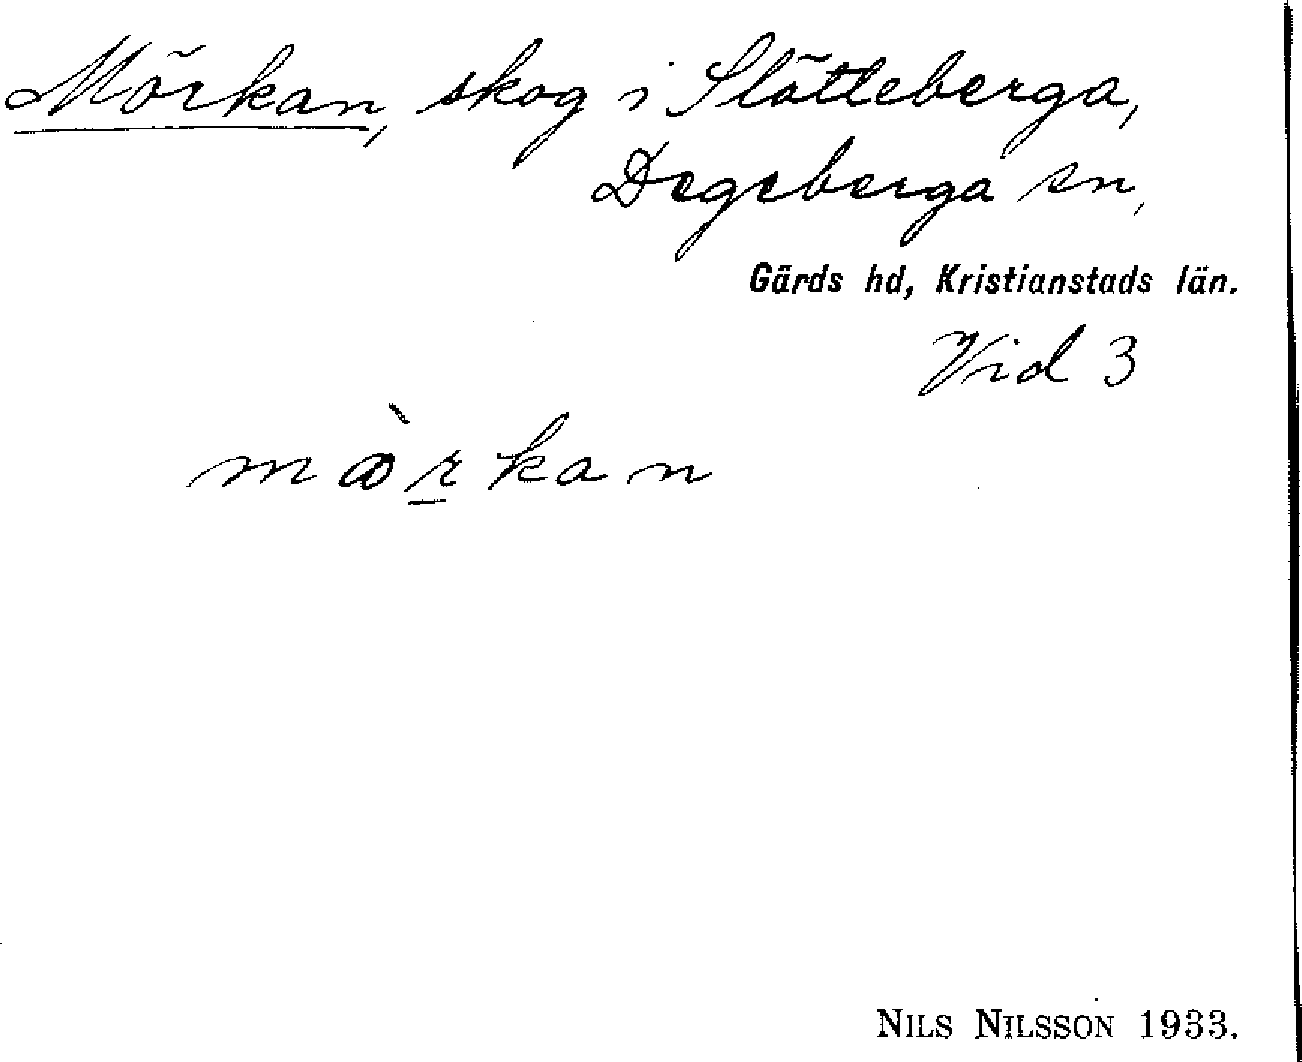 Mörkan, skog i Slätteberga,
Degeberga sn,
Gärds hd, Kristianstads län.
Vid 3
mꝏ̀r̠kan
NILS NILSSON 1933.